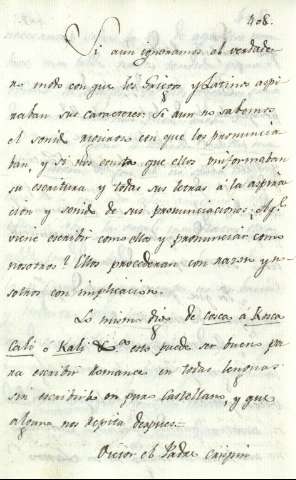 408.
Si aun ignoramos el verdade-
ro modo con que los Griegos y Latinos aspi-
raban sus caracteres: si aun no sabemos
el sonido con que los pronuncia-
ban y si nos consta que ellos uniformaban
su escritura y todas sus letras á la aspira-
cion y sonido de sus pronunciaciones:
viene escribir como ellos y pronunciar como
nosotros? Ellos procederan con razon y no-
sotros con implicacion.
Lo mismo digo de cosca á Kosca
Cali ó Kali &a esto puede ser bueno pa-
ra escribir Romance en todas lenguas
sin escribirlo en puro Castellano, y que
alguno nos repita despues.
Victor el Padre